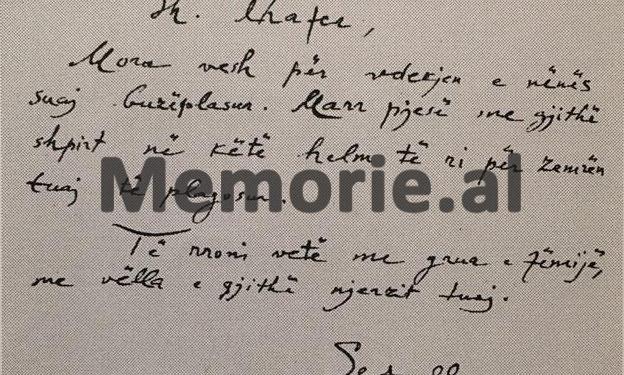 Mora vesh për vdekjen e nënës
suaj buzëplasur. Marr pjesë me gjithë
shpirt në këtë helm të ri për zemrën
Memorie.al
tuaj të plagosur.
Të rroni vetë me grua e fëmijë,
me vëlla e gjithë njerzit tuaj.